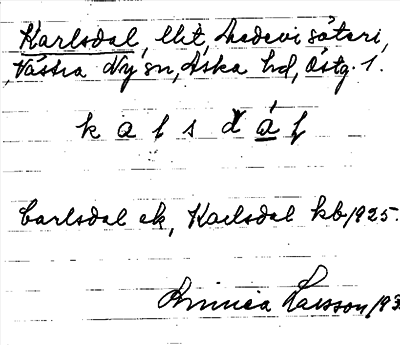 Karlsdal, lht, Medevi säteri,
Västra Ny sn, Aska hd, Östg. l.
k a l s d á l
Carlsdal ek, Karlsdal kb 1925.
Linnea Larsson, 193